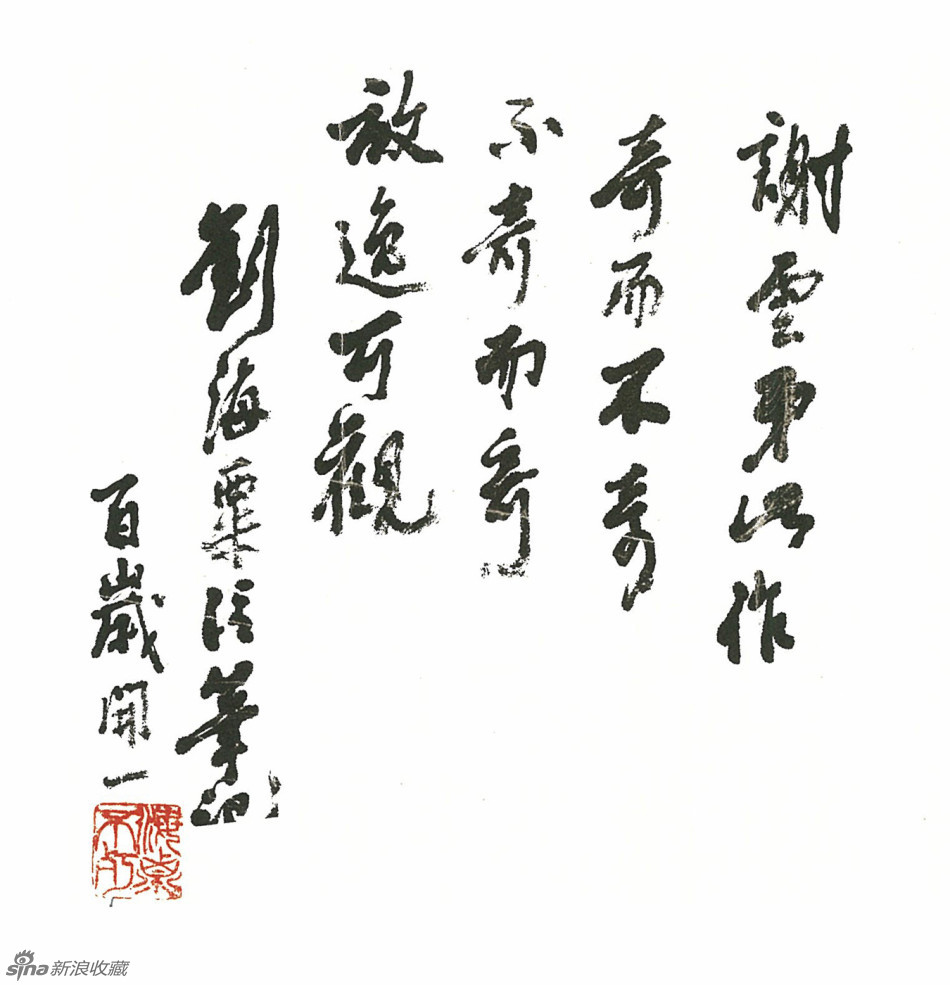 謝雲弟此作
奇而不奇
不奇而奇
放逸可觀
劉海粟信筆
百歲開一
sina 新浪收藏